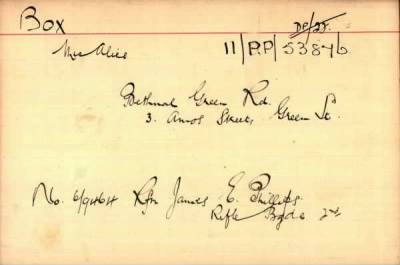 Box
DP/27.
Mrs Alice
11/P.P/53876
Bethnal Green Rd.
3. Amos Street, Green St.
No. 6/9464 Rfn James E. Phillips.
Rifle Bgde 2nd